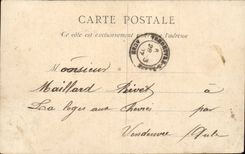 CARTE POSTALE
Ce côté est exclusivement réservé à l'adresse
Monsieur
Maillard Rivet à
La loge aux Chèvres par
Vendeuvre / Aube